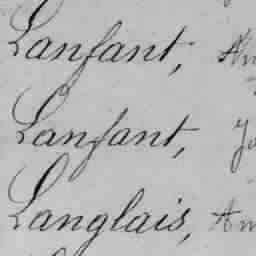 Lanfant,
Lanfant,
Langlais,